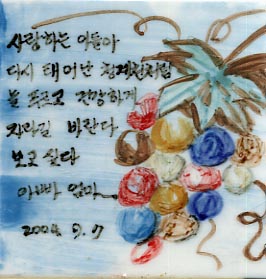 사랑하는 아들아
다시 태어난 청계천처럼
늘 푸르고 건강하게
자라길 바란다
보고 싶다
아빠 엄마
2004. 9. 7